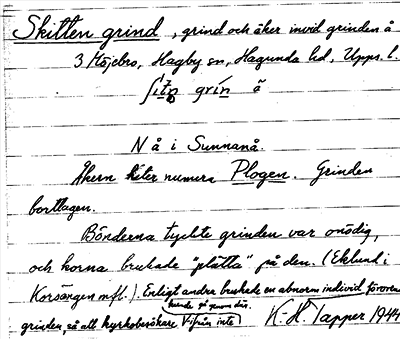 Skitten grind, grind och åker invid grinden å
3 Höjebro, Hagby sn, Hagunda hd, Upps. l.
grín ã
N å i Sunnanå.
Åkern heter numera Plogen. Grinden
borttagen.
Bönderna tyckte grinden var onödig,
och korna brukade "plätta" på den. (Eklund i
Korsängen mfl.). Enligt andra brukade en abnorm individ förorena
kunde gå genom där.
grinden, så att kyrkobesökare V ifrån inte K.-H. Tapper 1944